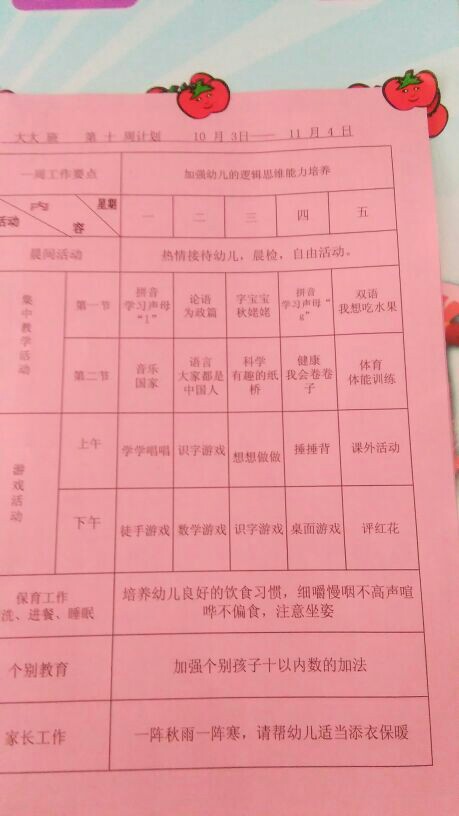 大大班 第十周计划 10月3日—— 11月4日
一周工作要点 加强幼儿的逻辑思维能力培养
内 星期
活动 容 一 二 三 四 五
晨间活动 热情接待幼儿，晨检，自由活动。
集中教学活动
第一节
拼音 学习声母 “l”
论语 为政篇
字宝宝 秋姥姥
拼音 学习声母“g”
双语 我想吃水果
第二节
音乐 国家
语言 大家都是中国人
科学 有趣的纸桥
健康 我会卷卷子
体育 体能训练
游戏活动
上午 学学唱唱 识字游戏 想想做做 捶捶背 课外活动
下午 徒手游戏 数学游戏 识字游戏 桌面游戏 评红花
保育工作
洗、进餐、睡眠
培养幼儿良好的饮食习惯，细嚼慢咽不高声喧
哗不偏食，注意坐姿
个别教育 加强个别孩子十以内数的加法
家长工作 一阵秋雨一阵寒，请帮幼儿适当添衣保暖